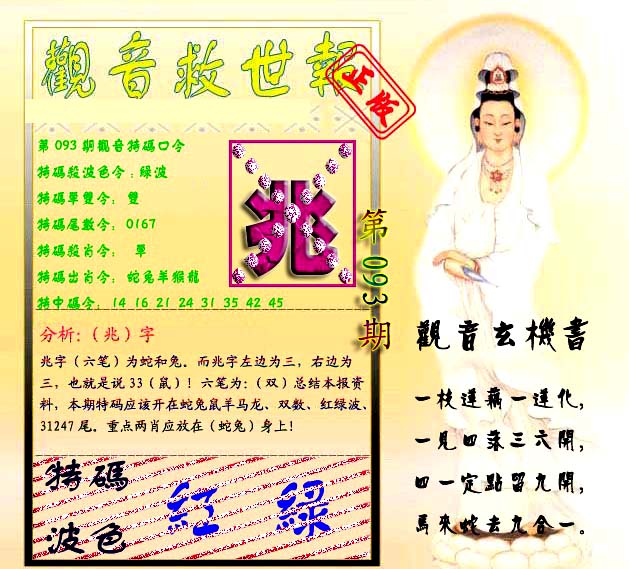 觀音救世報
正版
第 093 期觀音特碼口令
特碼殺波色令：綠波
特碼單雙令： 雙
特碼尾數令： 0167
特碼殺肖令： 單
特碼出肖令： 蛇兔羊猴龍
特中碼令： 14 16 21 24 31 35 42 45
兆
第 093 期
分析:（兆）字
兆字（六笔）为蛇和兔。而兆字左边为三，右边为
三，也就是说 33（鼠）！六笔为:（双）总结本报资
料，本期特码应该开在蛇兔鼠羊马龙、双数、红绿波、
31247 尾。重点两肖应放在（蛇兔）身上！
特碼
波色
紅 綠
觀音玄機書
一枝蓮藕一蓮化，
一見四落三六開，
四一定點留九開，
馬來蛇去九合一。